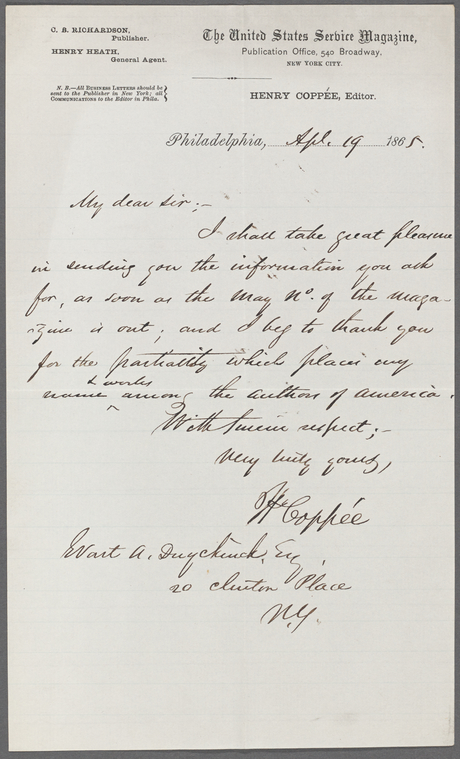 C. B. RICHARDSON,
Publisher.
HENRY HEATH,
General Agent.
N. B.—All BUSINESS LETTERS should be
sent to the Publisher in New York; all
COMMUNICATIONS to the Editor in Phila.
The United States Service Magazine,
Publication Office, 540 Broadway,
NEW YORK CITY.
HENRY COPPÉE, Editor.
Philadelphia, Apl. 19 1865.
My dear Sir;—
I shall take great pleasure
in sending you the information you ask
for, as soon as the May No. of the maga-
zine is out; and I beg to thank you
for the partiality which places my
& works
name ^ among the authors of America.
With sincere respect;—
Very truly yours,
H Coppée
Evart A. Duyckinck, Esq.
20 Clinton Place
N.Y.